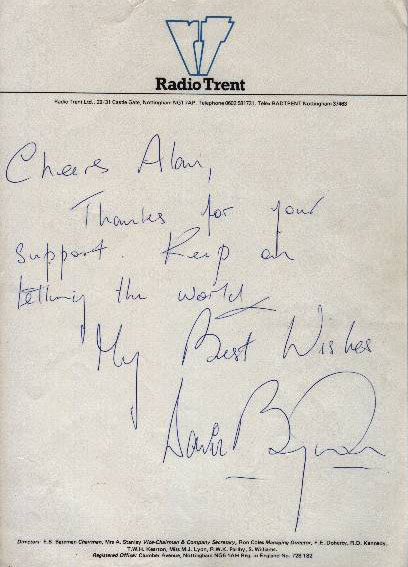 Radio Trent
Radio Trent Ltd., 29-31 Castle Gate, Nottingham NG1 7AP. Telephone 0602 581731. Telex RADTRENT Nottingham 37463
Cheers Alan,
Thanks for your
support. Keep on
telling the world
My Best Wishes
Directors: Chairman, Mrs A. Stanley Vice-Chairman & Company Secretary, Ron Coles Managing Director, F.E. Doherty, R.D. Kennedy,
T.W.H. Kearton, Miss M.J. Lyon, R.W.K. Parlby, S. Williams.
Registered Office: Clumber Avenue, Nottingham NG5 1AH Reg. in England No.